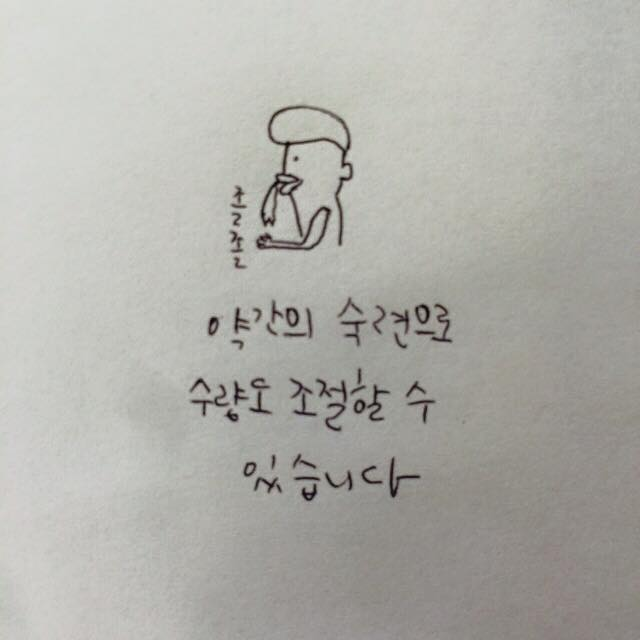 졸졸졸
약간의 수련으로
수량도 조절할 수
있습니다